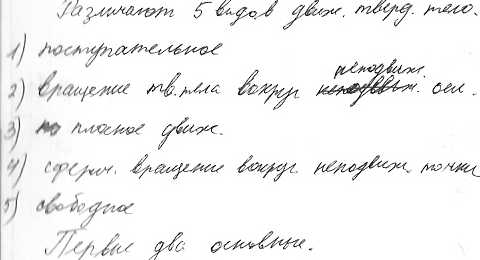 Различают 5 видов движ. тверд. тела.
1) поступательное
2) вращение тв. тела вокруг неподвиж. оси.
3) плоское движ.
4) сферич. вращение вокруг неподвиж. точки
5) свободное
Первые два основные.